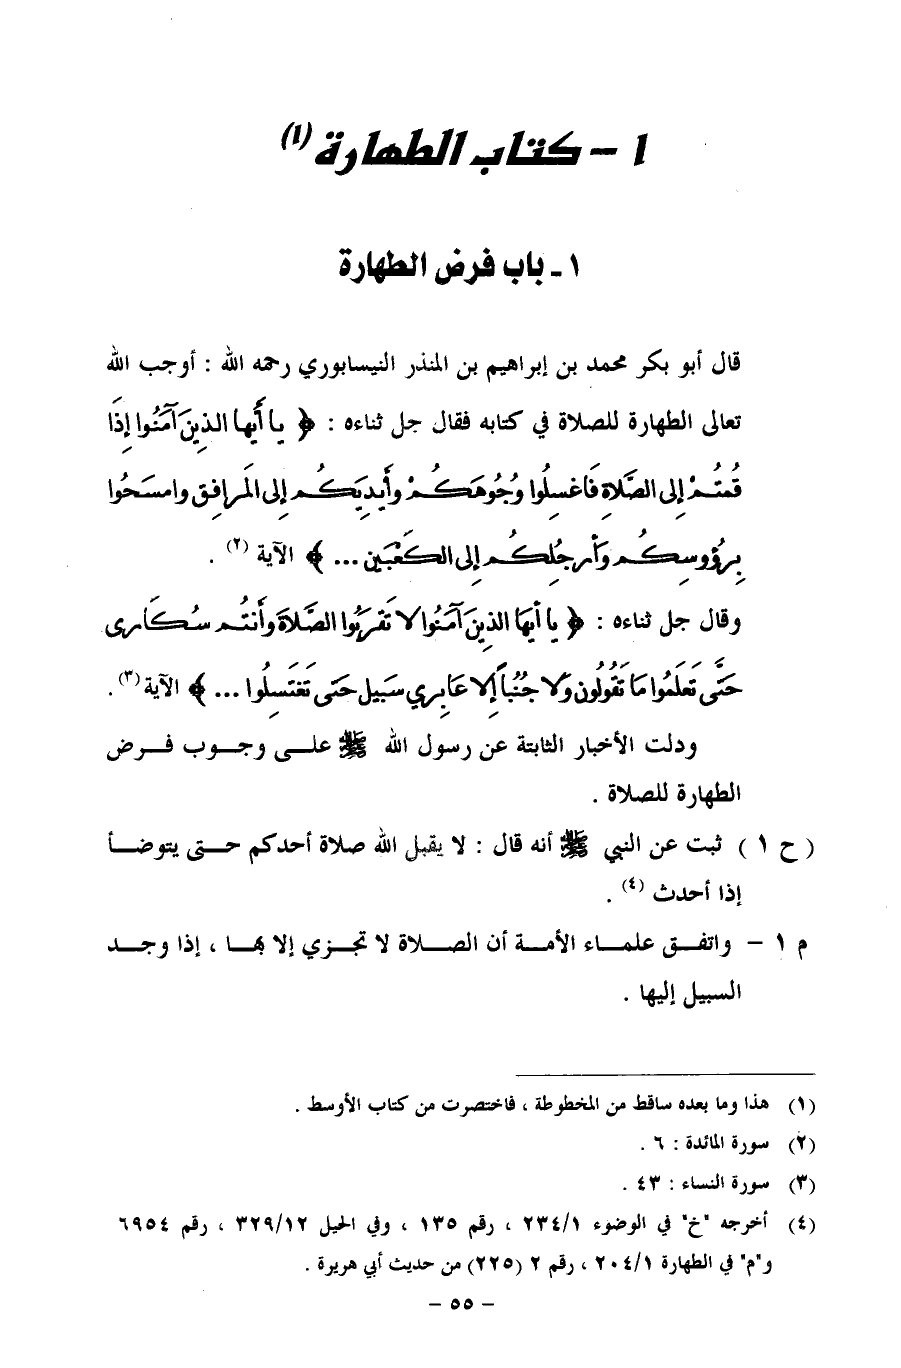 ١ – كتاب الطهارة (١)
١ ـ باب فرض الطهارة
قال أبو بكر محمد بن إبراهيم بن المنذر النيسابوري رحمه الله : أوجب الله
تعالى الطهارة للصلاة في كتابه فقال جل ثناءه : ﴿ يا أيها الذين آمنوا إذا
قمتم إلى الصلاة فاغسلوا وجوهكم وأيديكم إلى المرافق وامسحوا
برؤوسكم وأرجلكم إلى الكعبين ... ﴾ الآية (٢) .
وقال جل ثناءه : ﴿ يا أيها الذين آمنوا لا تقربوا الصلاة وأنتم سكارى
حتى تعلموا ما تقولون ولا جنباً إلا عابري سبيل حتى تغتسلوا ... ﴾ الآية (٣) .
ودلت الأخبار الثابتة عن رسول الله ﷺ علـى وجـوب فـرض
الطهارة للصلاة .
( ح ١ ) ثبت عن النبي ﷺ أنه قال : لا يقبل الله صلاة أحدكم حـتى يتوضـأ
إذا أحدث (٤) .
م ١ – واتفـق علمـاء الأمـة أن الصـلاة لا تجـزي إلا بهـا ، إذا وجـد
السبيل إليها .
(١) هذا وما بعده ساقط من المخطوطة ، فاختصرت من كتاب الأوسط .
(٢) سورة المائدة : ٦ .
(٣) سورة النساء : ٤٣ .
(٤) أخرجه "خ" في الوضوء ٢٣٤/١ ، رقم ١٣٥ ، وفي الحيل ٣٢٩/١٢ ، رقم ٦٩٥٤
و"م" في الطهارة ٢٠٤/١ ، رقم ٢ (٢٢٥) من حديث أبي هريرة .
– ٥٥ –